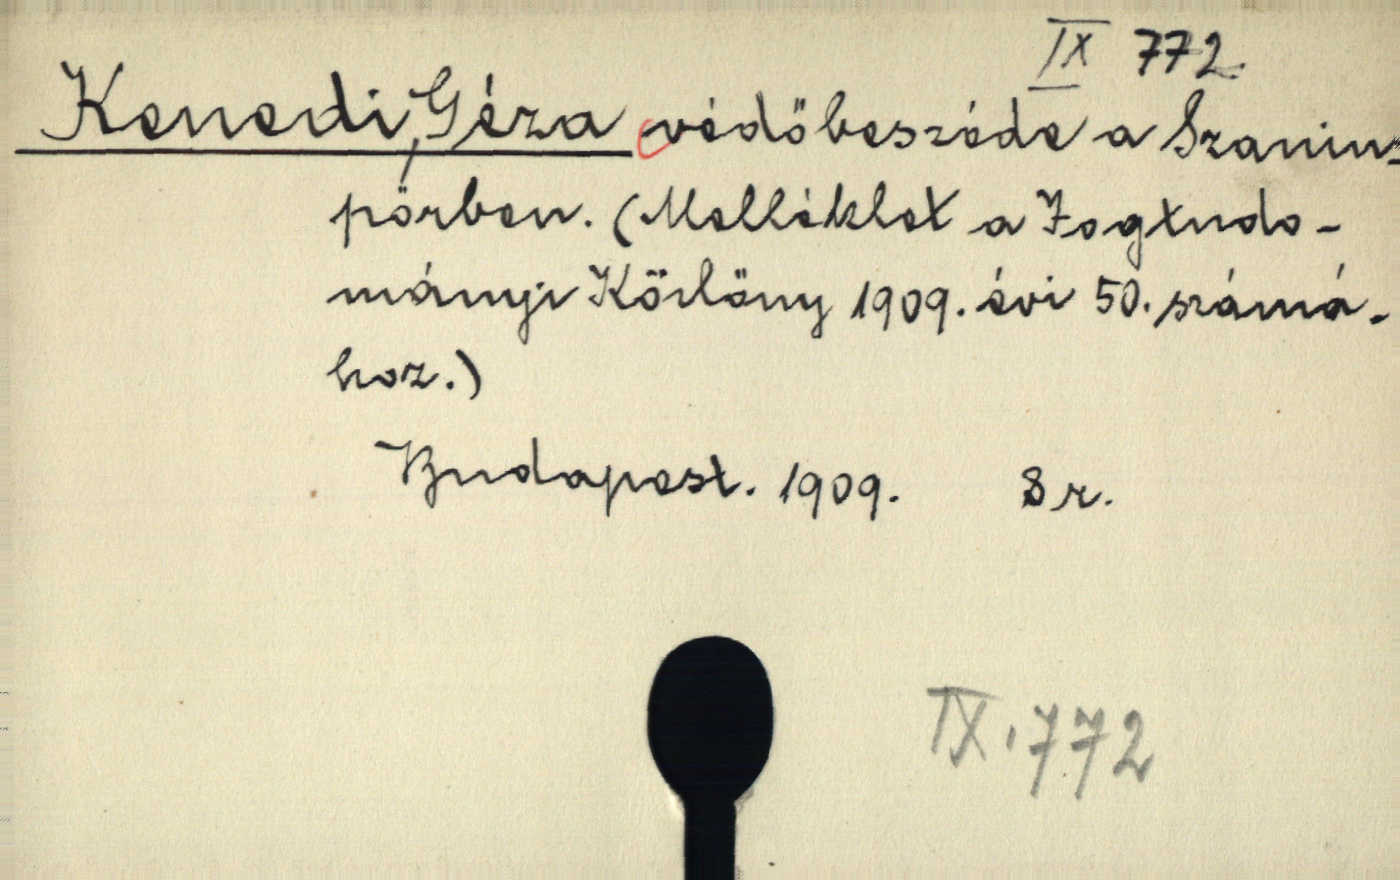 IX 772.
Kenedi, Géza védőbeszéde a Szanin-
pörben. (Melléklet a Jogtudo-
mányi Közlöny 1909. évi 50. számá-
hoz.)
Budapest. 1909. 8 r.
IX. 772